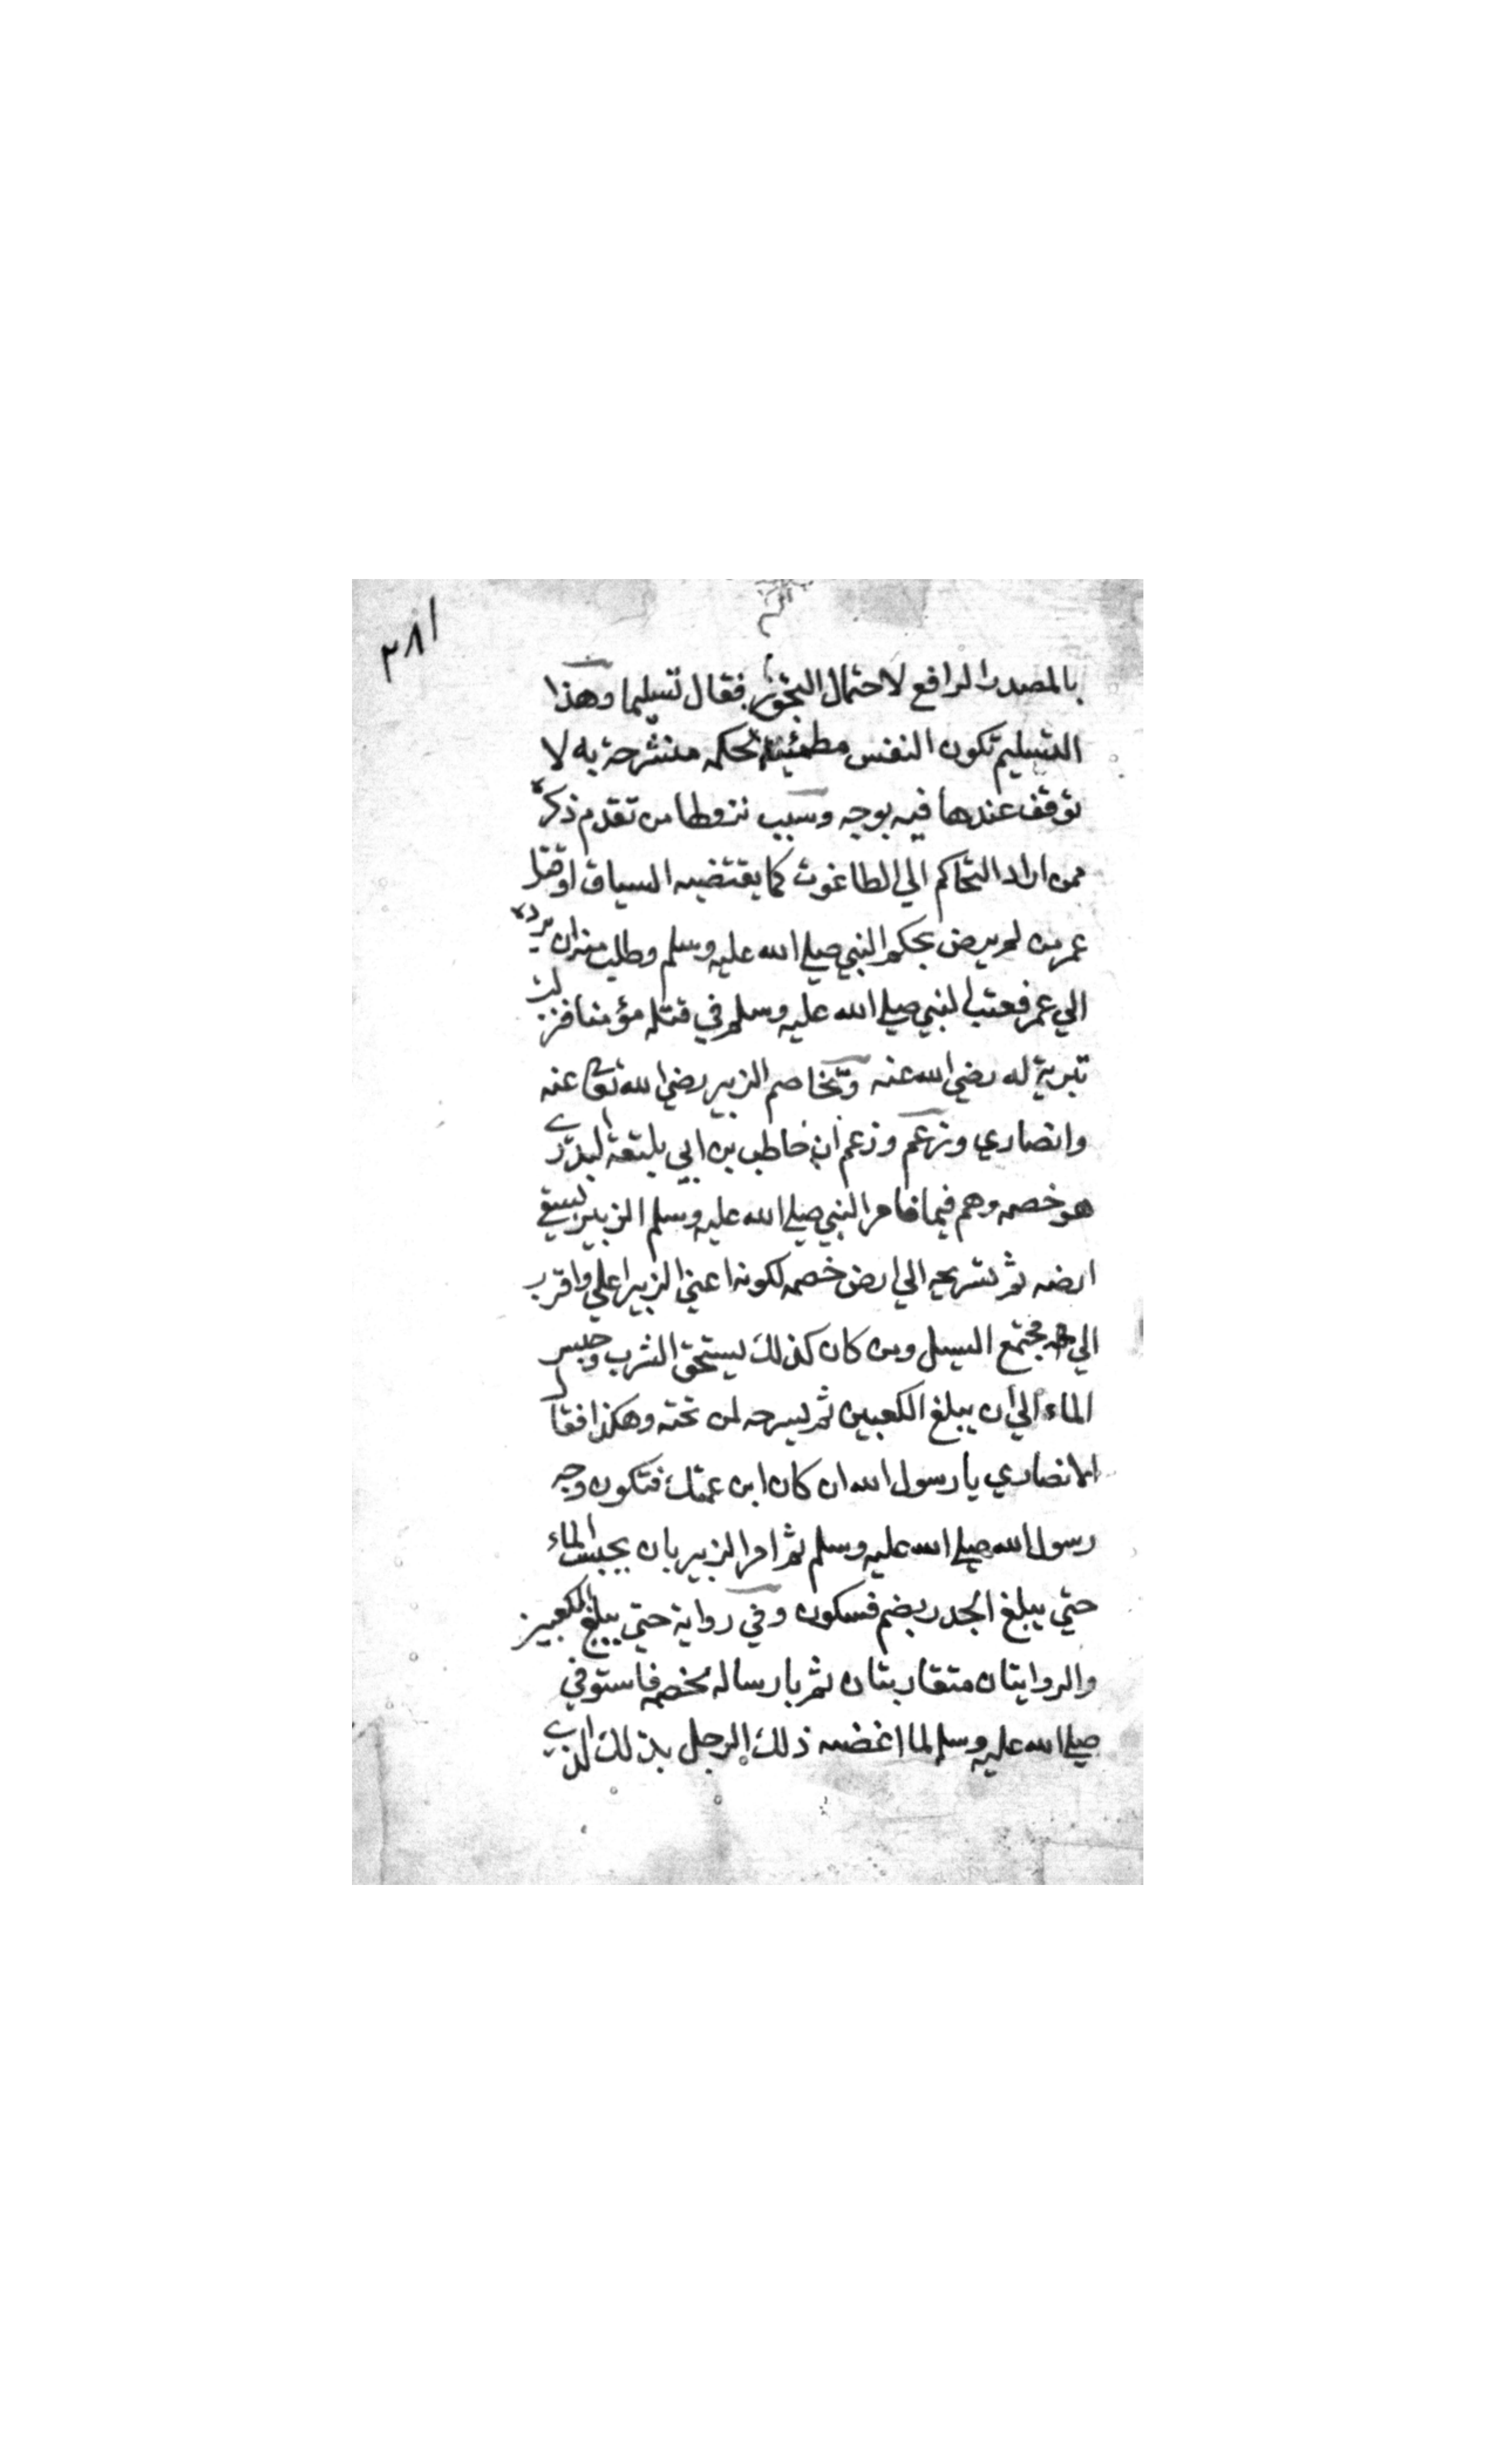 ٣٨١
بالمصدر الرافع لاحتمال التجوز فقال تسليما وهذا
التسليم تكون النفس مطمئنة بحكمه منشرحة به لا
توقف عندها فيه بوجه وسبب نزولها من تقدم ذكره
ممن اراد التحاكم الي الطاغوت كما يقتضيه السياق او قتل
عمر من لم يرض بحكم النبي صلي الله عليه وسلم وطلب منه ان يرده
الي عمر فعتب النبي صلي الله عليه وسلم في قتله مؤمنا فنزلت
تبرية له رضي الله عنه وتخاصم الزبير رضي الله تعالى عنه
وانصاري وزعم وزعم ان خاطب بن ابي بلتعة البدري
هو خصمه وهم فيما فامر النبي صلي الله عليه وسلم الزبير يسقي
ارضه ثم تسريحه الي ارض خصمه لكونه اعني الزبير اعلي واقرب
الي مجتمع السيل ومن كان كذلك يستحق الشرب وحبس
الماء الي ان يبلغ الكعبين ثم يسرحه لمن تحته وهكذا فقال
الانصاري يا رسول الله ان كان ابن عمتك فتكون وجه
رسول الله صلي الله عليه وسلم ثم امر الزبير بان يحبس الماء
حتي يبلغ الجدر بضم فسكون وفي رواية حتي يبلغ الكعبين
والروايتان متقاربتان ثم بارساله لخصمه فاستوفي
صلي الله عليه وسلم لما اغضبه ذلك الرجل بذلك الذي